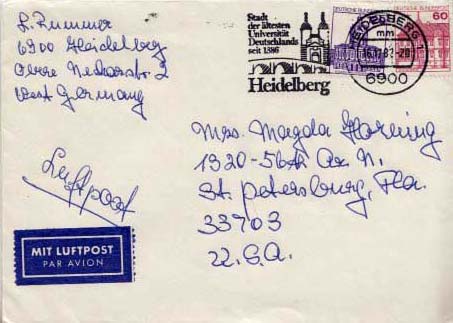 L. Zummer
6900 Heidelberg
Obere Neckarstr. 2
West Germany
Stadt
der ältesten
Universität
Deutschlands
seit 1386
Heidelberg
DEUTSCHE BUNDESPOST
60
HEIDELBERG 1
mm
6900
Mrs. Magda Horning
1920-56th Av. N.
St. Petersburg, Fla.
33703
U.S.A.
Luftpost
MIT LUFTPOST
PAR AVION